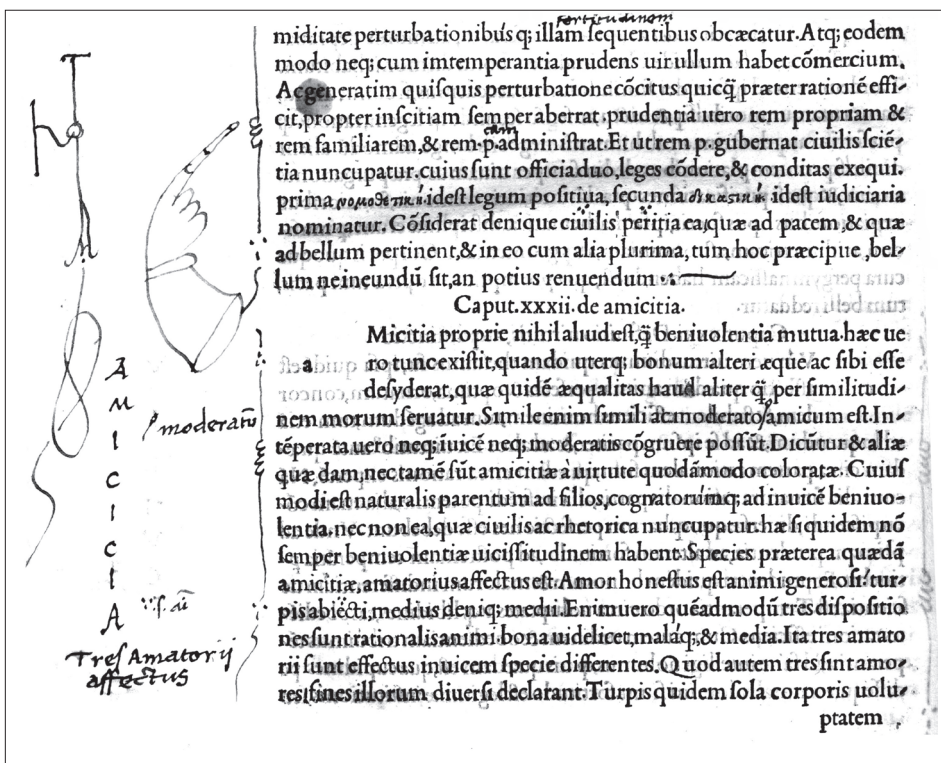 fortitudinem
miditate perturbationibus q; illam sequentibus obcæcatur. Atq; eodem
modo neq; cum imtemperantia prudens uir ullum habet cõmercium.
Ac generatim quisquis perturbatione cõcitus quicq̃ præter rationẽ effi-
cit, propter inscitiam semper aberrat. prudentia uero rem propriam &
cam
rem familiarem, & rem. p. administrat. Et ut rem p. gubernat ciuilis sciẽ-
tia nuncupatur. cuius sunt officia duo, leges cõdere, & conditas exequi.
prima νομοθετικὴ idest legum positiua, secunda δικαστικὴ idest iudiciaria
nominatur. Cõsiderat denique ciuilis peritia ea, quæ ad pacem, & quæ
ad bellum pertinent, & in eo cum alia plurima, tum hoc præcipue, bel-
lum ne ineundũ sit, an potius renuendum
Caput. xxxii. de amicitia.
Micitia proprie nihil aliud est, q̃ beniuolentia mutua. hæc ue
a ro tunc existit, quando uterq; bonum alteri æque ac sibi esse
desyderat, quæ quidẽ æqualitas haud aliter q̃ per similitudi-
nem morum seruatur. Simile enim simili ac moderato amicum est. In-
tẽperata uero neq; iuicẽ neq; moderatis cõgruere possũt. Dicũtur & aliæ
quæ dam, nec tamẽ sũt amicitiæ à uirtute quodãmodo coloratæ. Cuius
modi est naturalis parentum ad filios, cognatorũmq; ad inuicẽ beniuo-
lentia. nec non ea, quæ ciuilis ac rhetorica nuncupatur. hæ siquidem nõ
semper beniuolentiæ uicissitudinem habent. Species præterea quædã
amicitiæ, amatorius affectus est. Amor honestus est animi generosi: tur-
pis abiecti, medius deniq; medii. Enimuero quẽadmodũ tres dispositio
nes sunt rationalis animi. bona uidelicet, malaq;, & media. Ita tres amato
rii sunt effectus inuicem specie differentes. Quod autem tres sint amo-
res, fines illorum diuersi declarant. Turpis quidem sola corporis uolu-
ptatem
moderatũ
A
M
I
C
I
C
I
A
Tres Amatorij
affectus